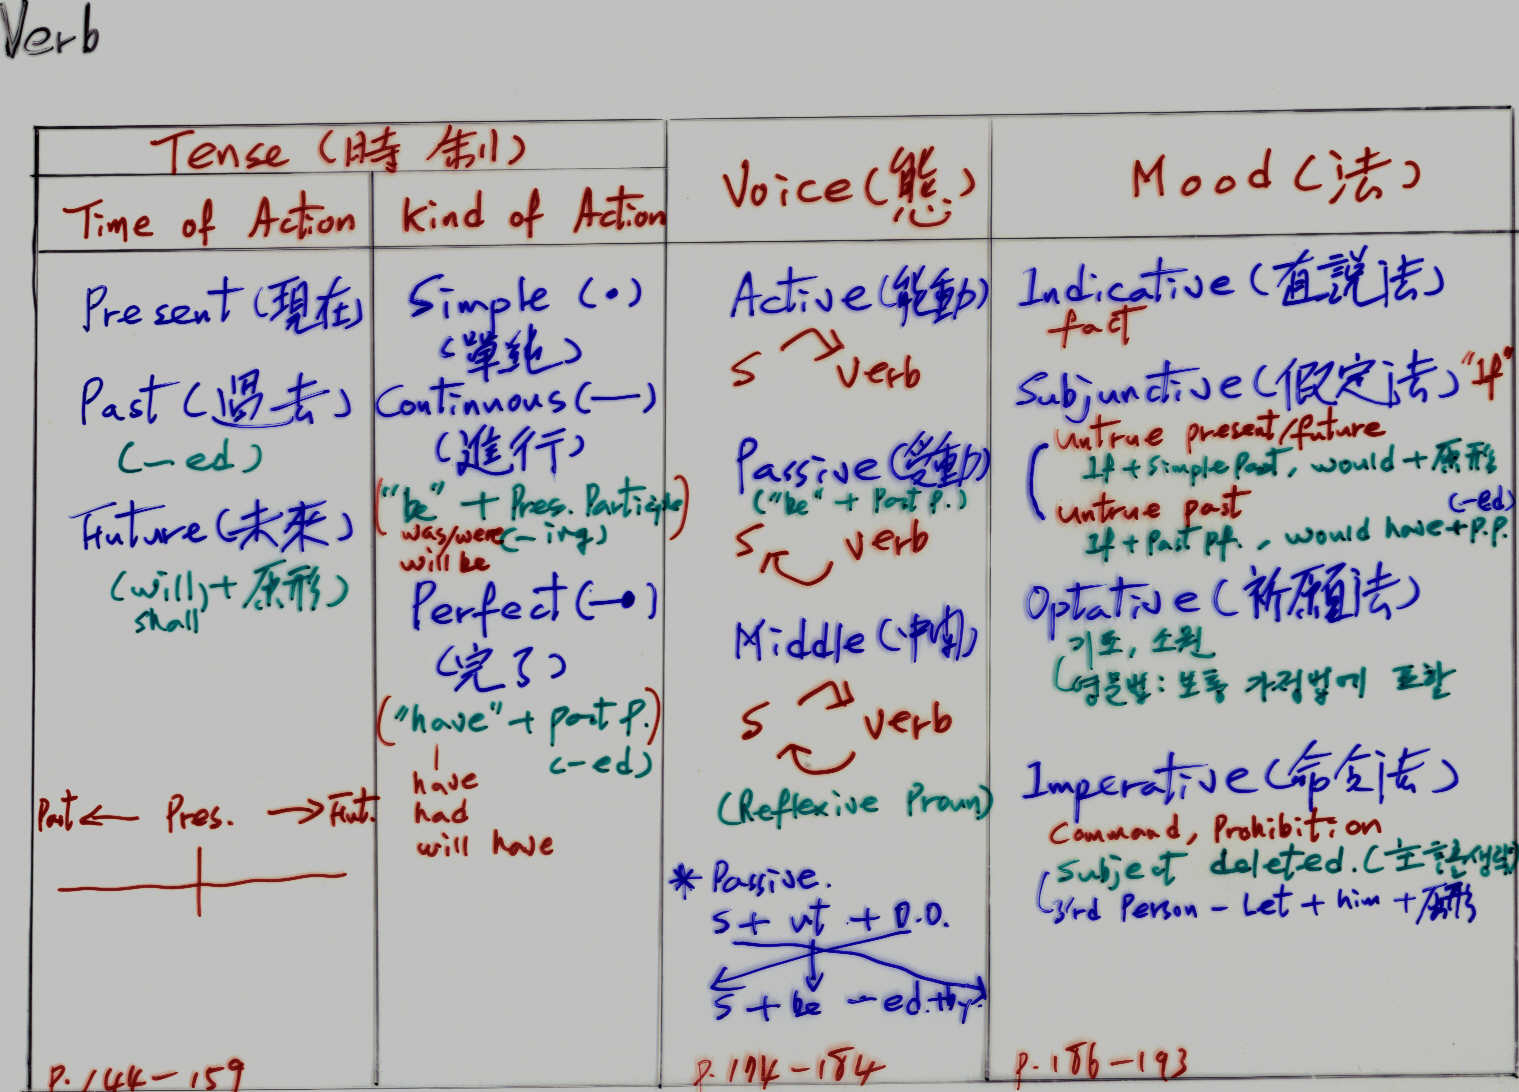 Verb
Tense (時制)
Time of Action
Present (現在)
Past (過去)
(-ed)
Future (未來)
(will) + 原形)
shall
Past ← Pres. → Fut.
P. 144-159
Kind of Action
Simple (•)
(單純)
Continuous (—)
(進行)
("be" + Pres. Participle)
was/were (-ing)
will be
Perfect (—•)
(完了)
("have" + past P.)
(-ed)
have
had
will have
Voice (態)
Active (能動)
S verb
Passive (受動)
("be" + Past P.)
S verb
Middle (中間)
S verb
(Reflexive Proun)
* Passive.
S + vt + D.O.
S + be -ed. + by.
P. 174-184
Mood (法)
Indicative (直說法)
fact
Subjunctive (假定法) "If"
untrue present/future
If + simple Past, would + 原形
untrue past (-ed)
If + Past pf., would have + p.p.
Optative (祈願法)
기도, 소원
영문법: 보통 가정법에 포함
Imperative (命令法)
Command, Prohibition
Subject deleted. (主語생략)
3rd Person - Let + him + 原形
P. 186-193